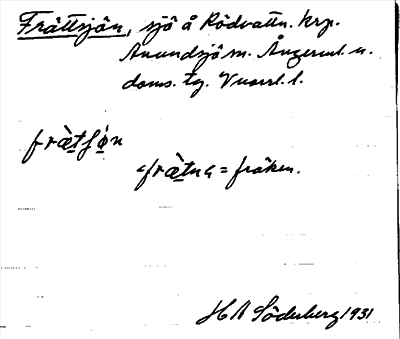 Frättsjön, sjö å Rödvattn. krp.
Anundsjö sn. Ångerml. n.
doms. tg. Vnorrl. l.
fræ̀tʃø̀n
<fræ̀tnɐ = fräken.
H A Söderberg 1931